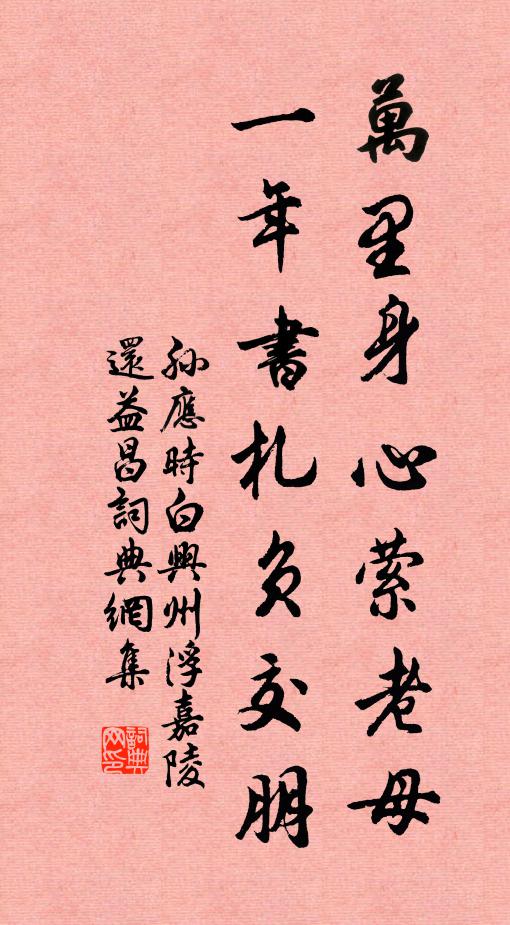 萬里身心縈老母
一年書札負交朋
孫應時白興州浮嘉陵
還益昌詞典網集
詞典网印